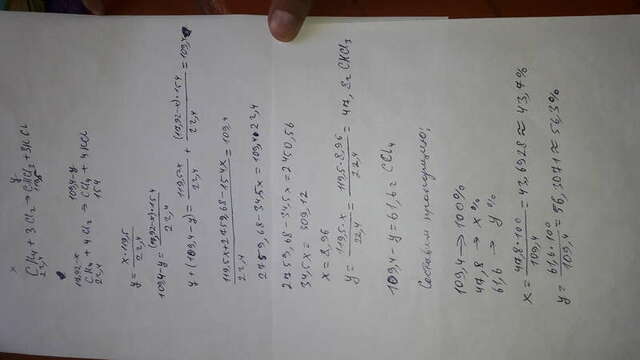 x y
CH4 + 3Cl2 → CHCl3 + 3HCl
22,4 119,5
17,92-x 109,4-y
CH4 + 4Cl2 → CCl4 + 4HCl
22,4 154
y = x·119,5 / 22,4
109,4-y = (17,92-x)·154 / 22,4
y + (109,4-y) = 119,5·x / 22,4 + (17,92-x)·154 / 22,4 = 109,4
119,5x + 2759,68 - 154x / 22,4 = 109,4
2759,68 - 34,5x = 109,4·22,4
2759,68 - 34,5x = 2450,56
34,5x = 309,12
x = 8,96
y = 119,5·x / 22,4 = 119,5·8,96 / 22,4 = 47,8г CHCl3
109,4 - y = 61,6г CCl4
Составим пропорцию:
109,4 → 100%
47,8 → x%
61,6 → y%
x = 47,8·100 / 109,4 = 43,6928 ≈ 43,7%
y = 61,6·100 / 109,4 = 56,3071 ≈ 56,3%